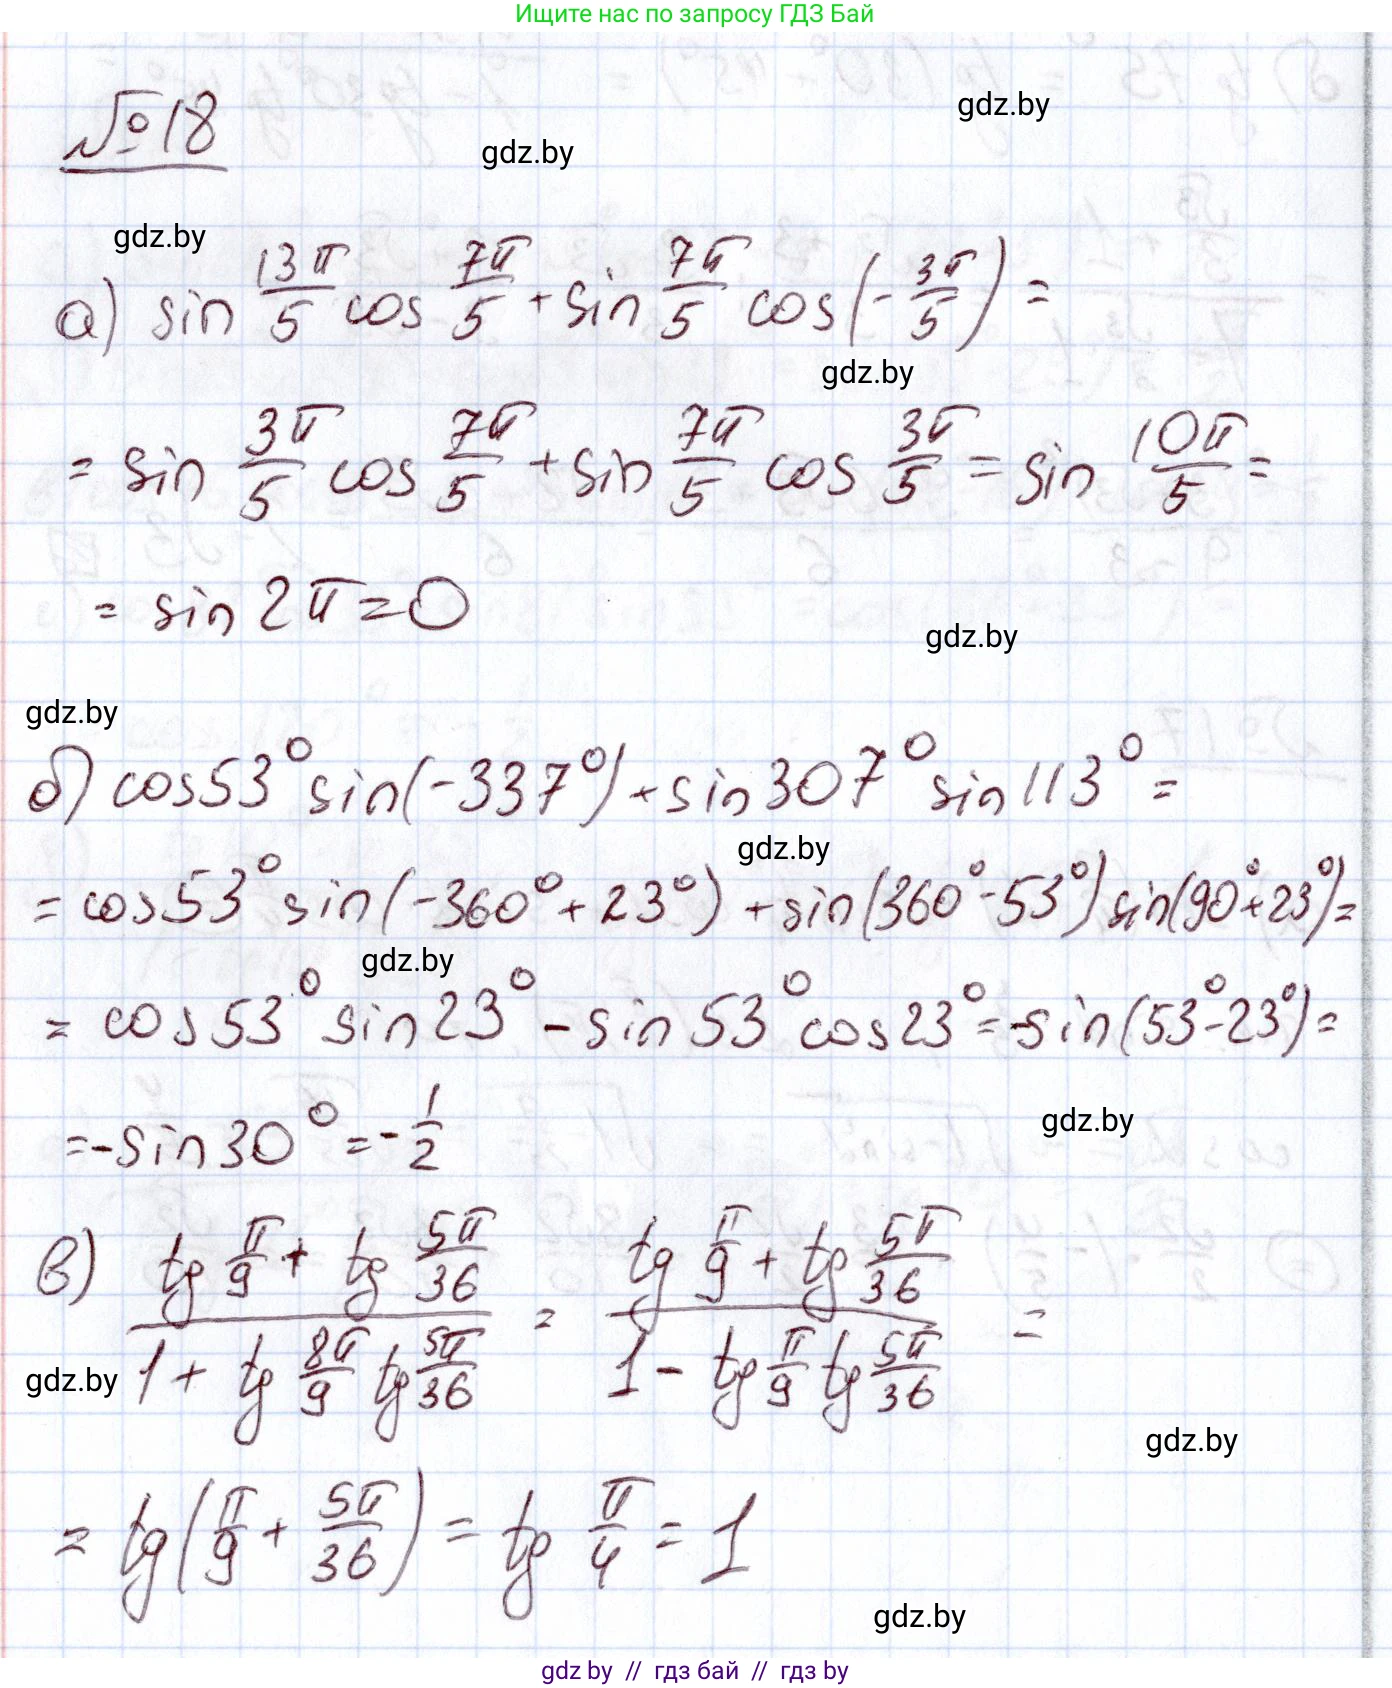 Ищите нас по запросу ГДЗ Бай
gdz.by
№18
gdz.by
gdz.by
а) sin 13π/5 cos 7π/5 + sin 7π/5 cos(-3π/5) =
gdz.by
= sin 3π/5 cos 7π/5 + sin 7π/5 cos 3π/5 = sin 10π/5 =
= sin 2π = 0
gdz.by
gdz.by
б) cos53° sin(-337°) + sin307° sin113° =
gdz.by
= cos53° sin(-360° + 23°) + sin(360° - 53°) sin(90° + 23°) =
gdz.by
= cos53° sin23° - sin53° cos23° = -sin(53° - 23°) =
gdz.by
= -sin30° = -1/2
в) (tg π/9 + tg 5π/36)/(1 + tg 8π/9 tg 5π/36) = (tg π/9 + tg 5π/36)/(1 - tg π/9 tg 5π/36) =
gdz.by
gdz.by
= tg(π/9 + 5π/36) = tg π/4 = 1
gdz.by
gdz by // гдз бай // гдз by